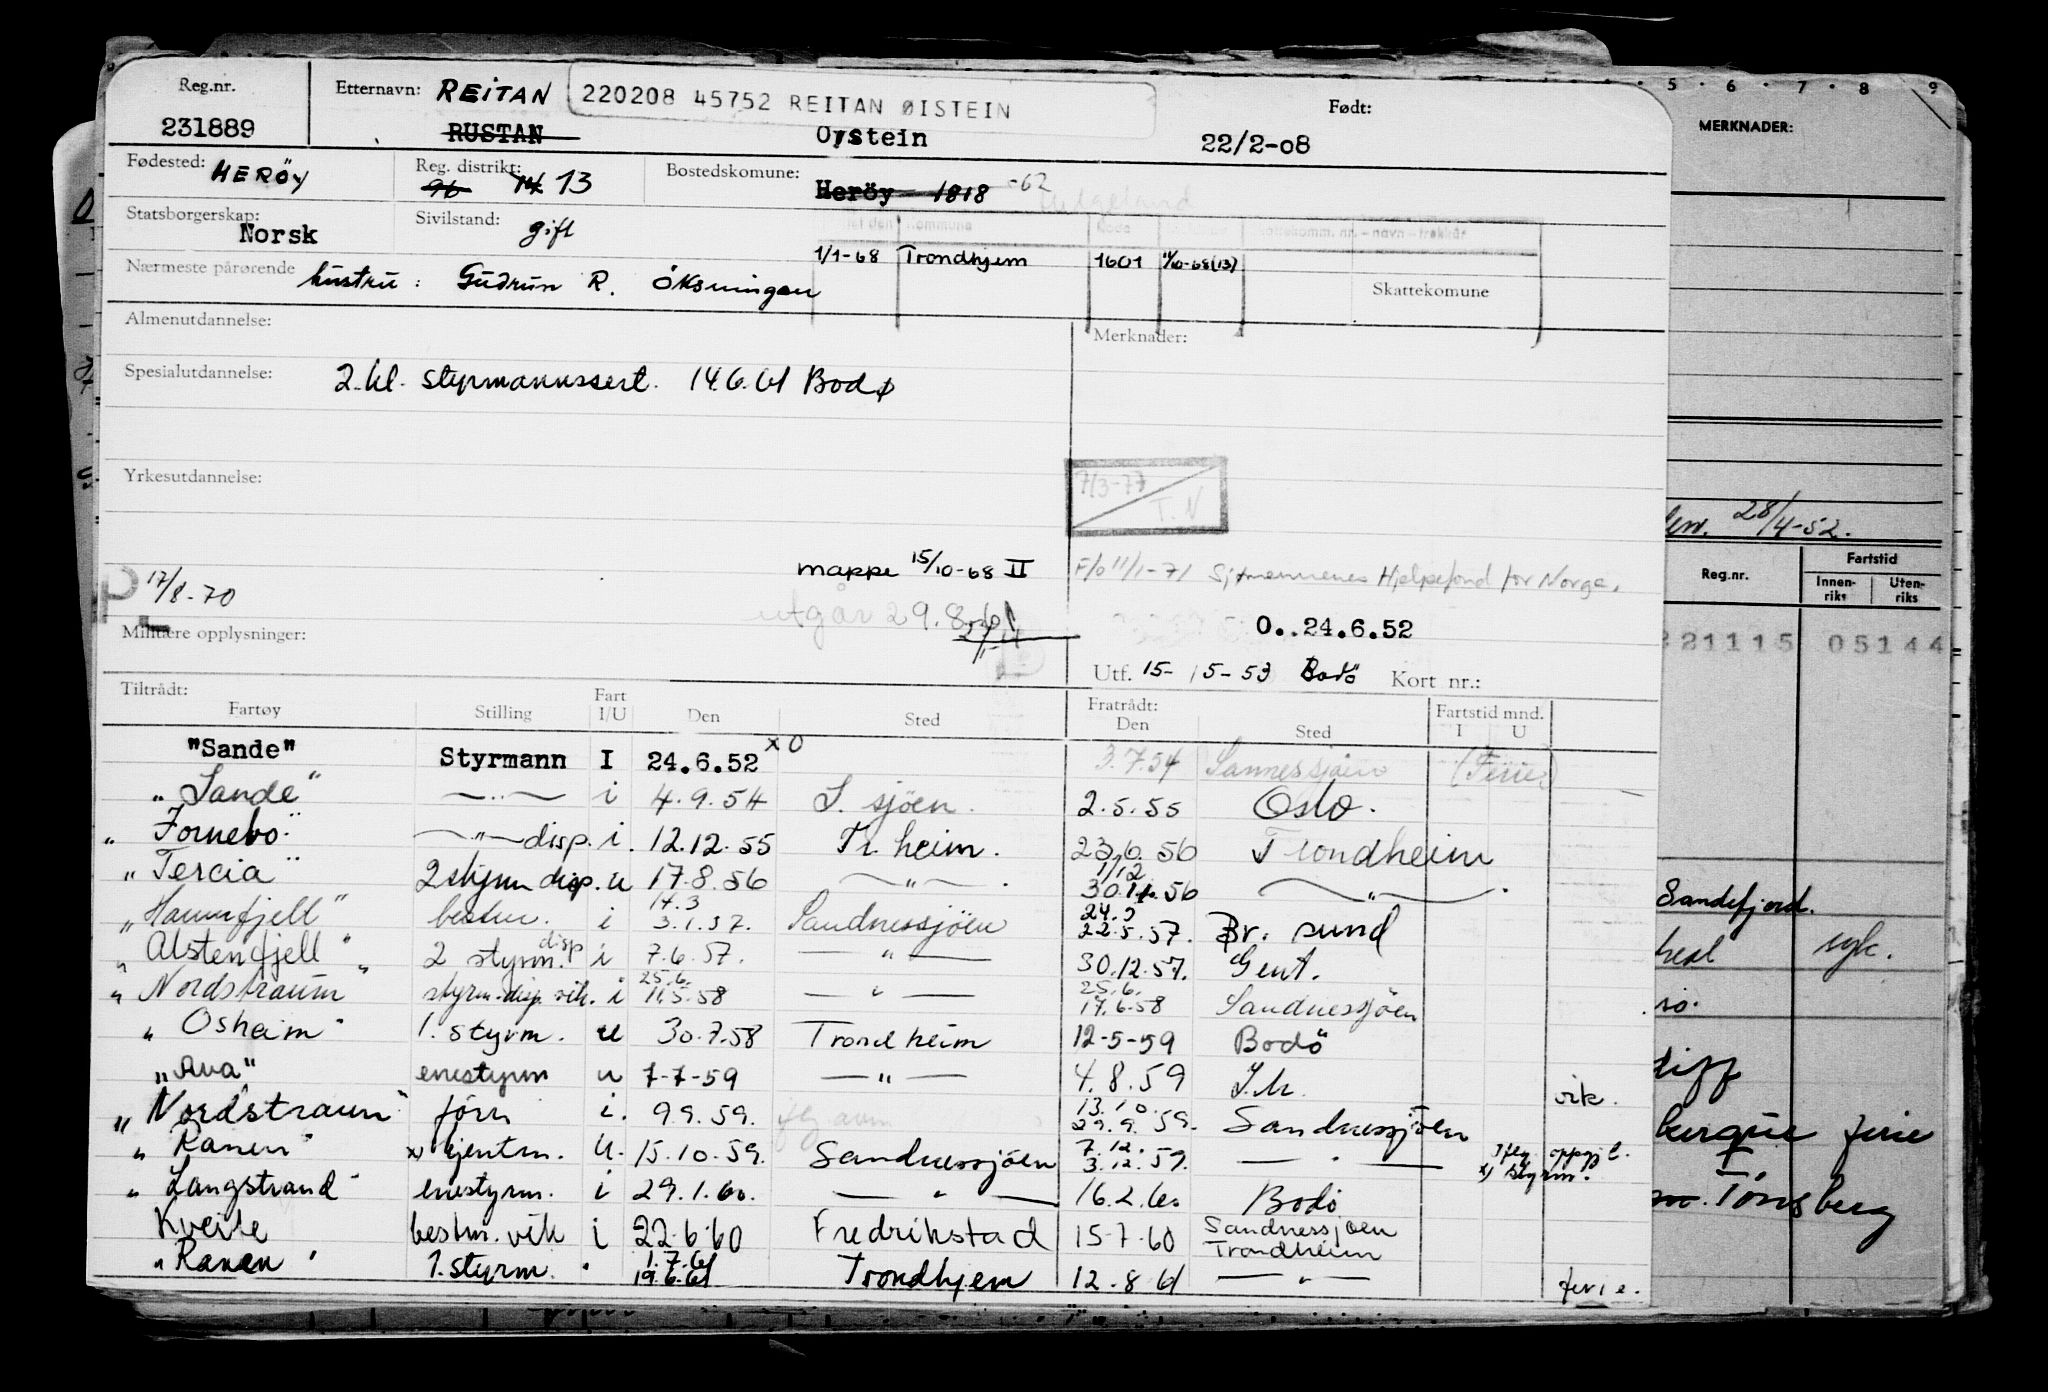 Reg.nr. Etternavn: REITAN 220208 45752 REITAN ØISTEIN Født:
231889 RUSTAN Oystein 22/2-08
Fødested: HERÖY Reg. distrikt: 96 14 13 Bostedskomune: Heröy - 1818 -62 Helgeland
Statsborgerskap: Norsk Sivilstand: gift
1/1-68 Trondhjem 1601 Skattekomune
Nærmeste pårørende hustru: Gudrun R. Öksningan
Almenutdannelse: Merknader:
Spesialutdannelse: 2. kl. styrmannssert. 14.6.61 Bodø
Yrkesutdannelse: 7/3-77 T.N
mappe 15/10-68 II F/o 11/1-71 Sjømennenes Hjelpefond for Norge.
P 17/8-70 utgår 29.8.61 O..24.6.52
Militære opplysninger: Utf. 15- 5-53 Bodö Kort nr.:
Tiltrådt: Fratrådt: Fartstid mnd.
Fartøy Stilling Fart I/U Den Sted Den Sted I U
"Sande" Styrmann I 24.6.52 x O 3.7.54 Sannessjøen (Ferie)
"Sande" —..— i 4.9.54 S. sjöen. 2.5.55 Oslo.
"Fornebo" —"— disp. i. 12.12.55 Tr. heim. 23.6.56 Trondheim
"Tercia" 2 styrm disp. u 17.8.56 —"—. 1/12 30.11.56 —"—.
"Havnfjell" bestm. i 17.3 3.1.57. Sandnessjöen 24.5 22.5.57. Br. sund
"Alstenfjell" 2 styrm. disp i 7.6.57. —"— 30.12.57. Gent.
"Nordstraum" styrm. disp. vik. i 25.6. 11.5.58 —"— 25.6. 17.6.58 Sandnessjöen
"Osheim" 1. styrm. u 30.7.58 Trondheim 12-5-59 Bodö
"Ava" enestyrm u 7-7-59 —"— 4.8.59 vik.
"Nordstraum" förer i. 9.9.59. 13.10. 29.9.59. Sandnessjöen
"Ranen" x) kjentm. U. 15.10.59. Sandnessjöen 7.12. 3.12.59. —"— oppgj t. x) styrm.
"Langstrand" enestyrm. i 29.1.60. —"— 16.2.60 Bodö
Kveite bestm. vik i 22.6.60 Fredrikstad 15.7.60 Sandnessjøen Trondheim
"Ranen" 1. styrm. " 1.7.61 19.6.61 Trondhjem 12.8.61 —"— ferie.
5 6 7 8 9
MERKNADER:
28/4-52.
Reg.nr. Fartstid
Innen-riks Uten-riks
21115 05144
Sandefjord.
syk.
ferie
Tønsberg